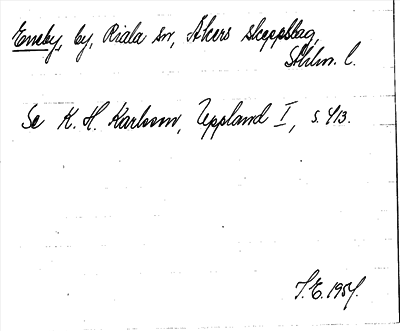 Emeby, by, Riala sn, Åkers skeppslag,
Sthlm. l.
Se K. H. Karlsson, Uppland I, s. 413.
T. E. 1954.